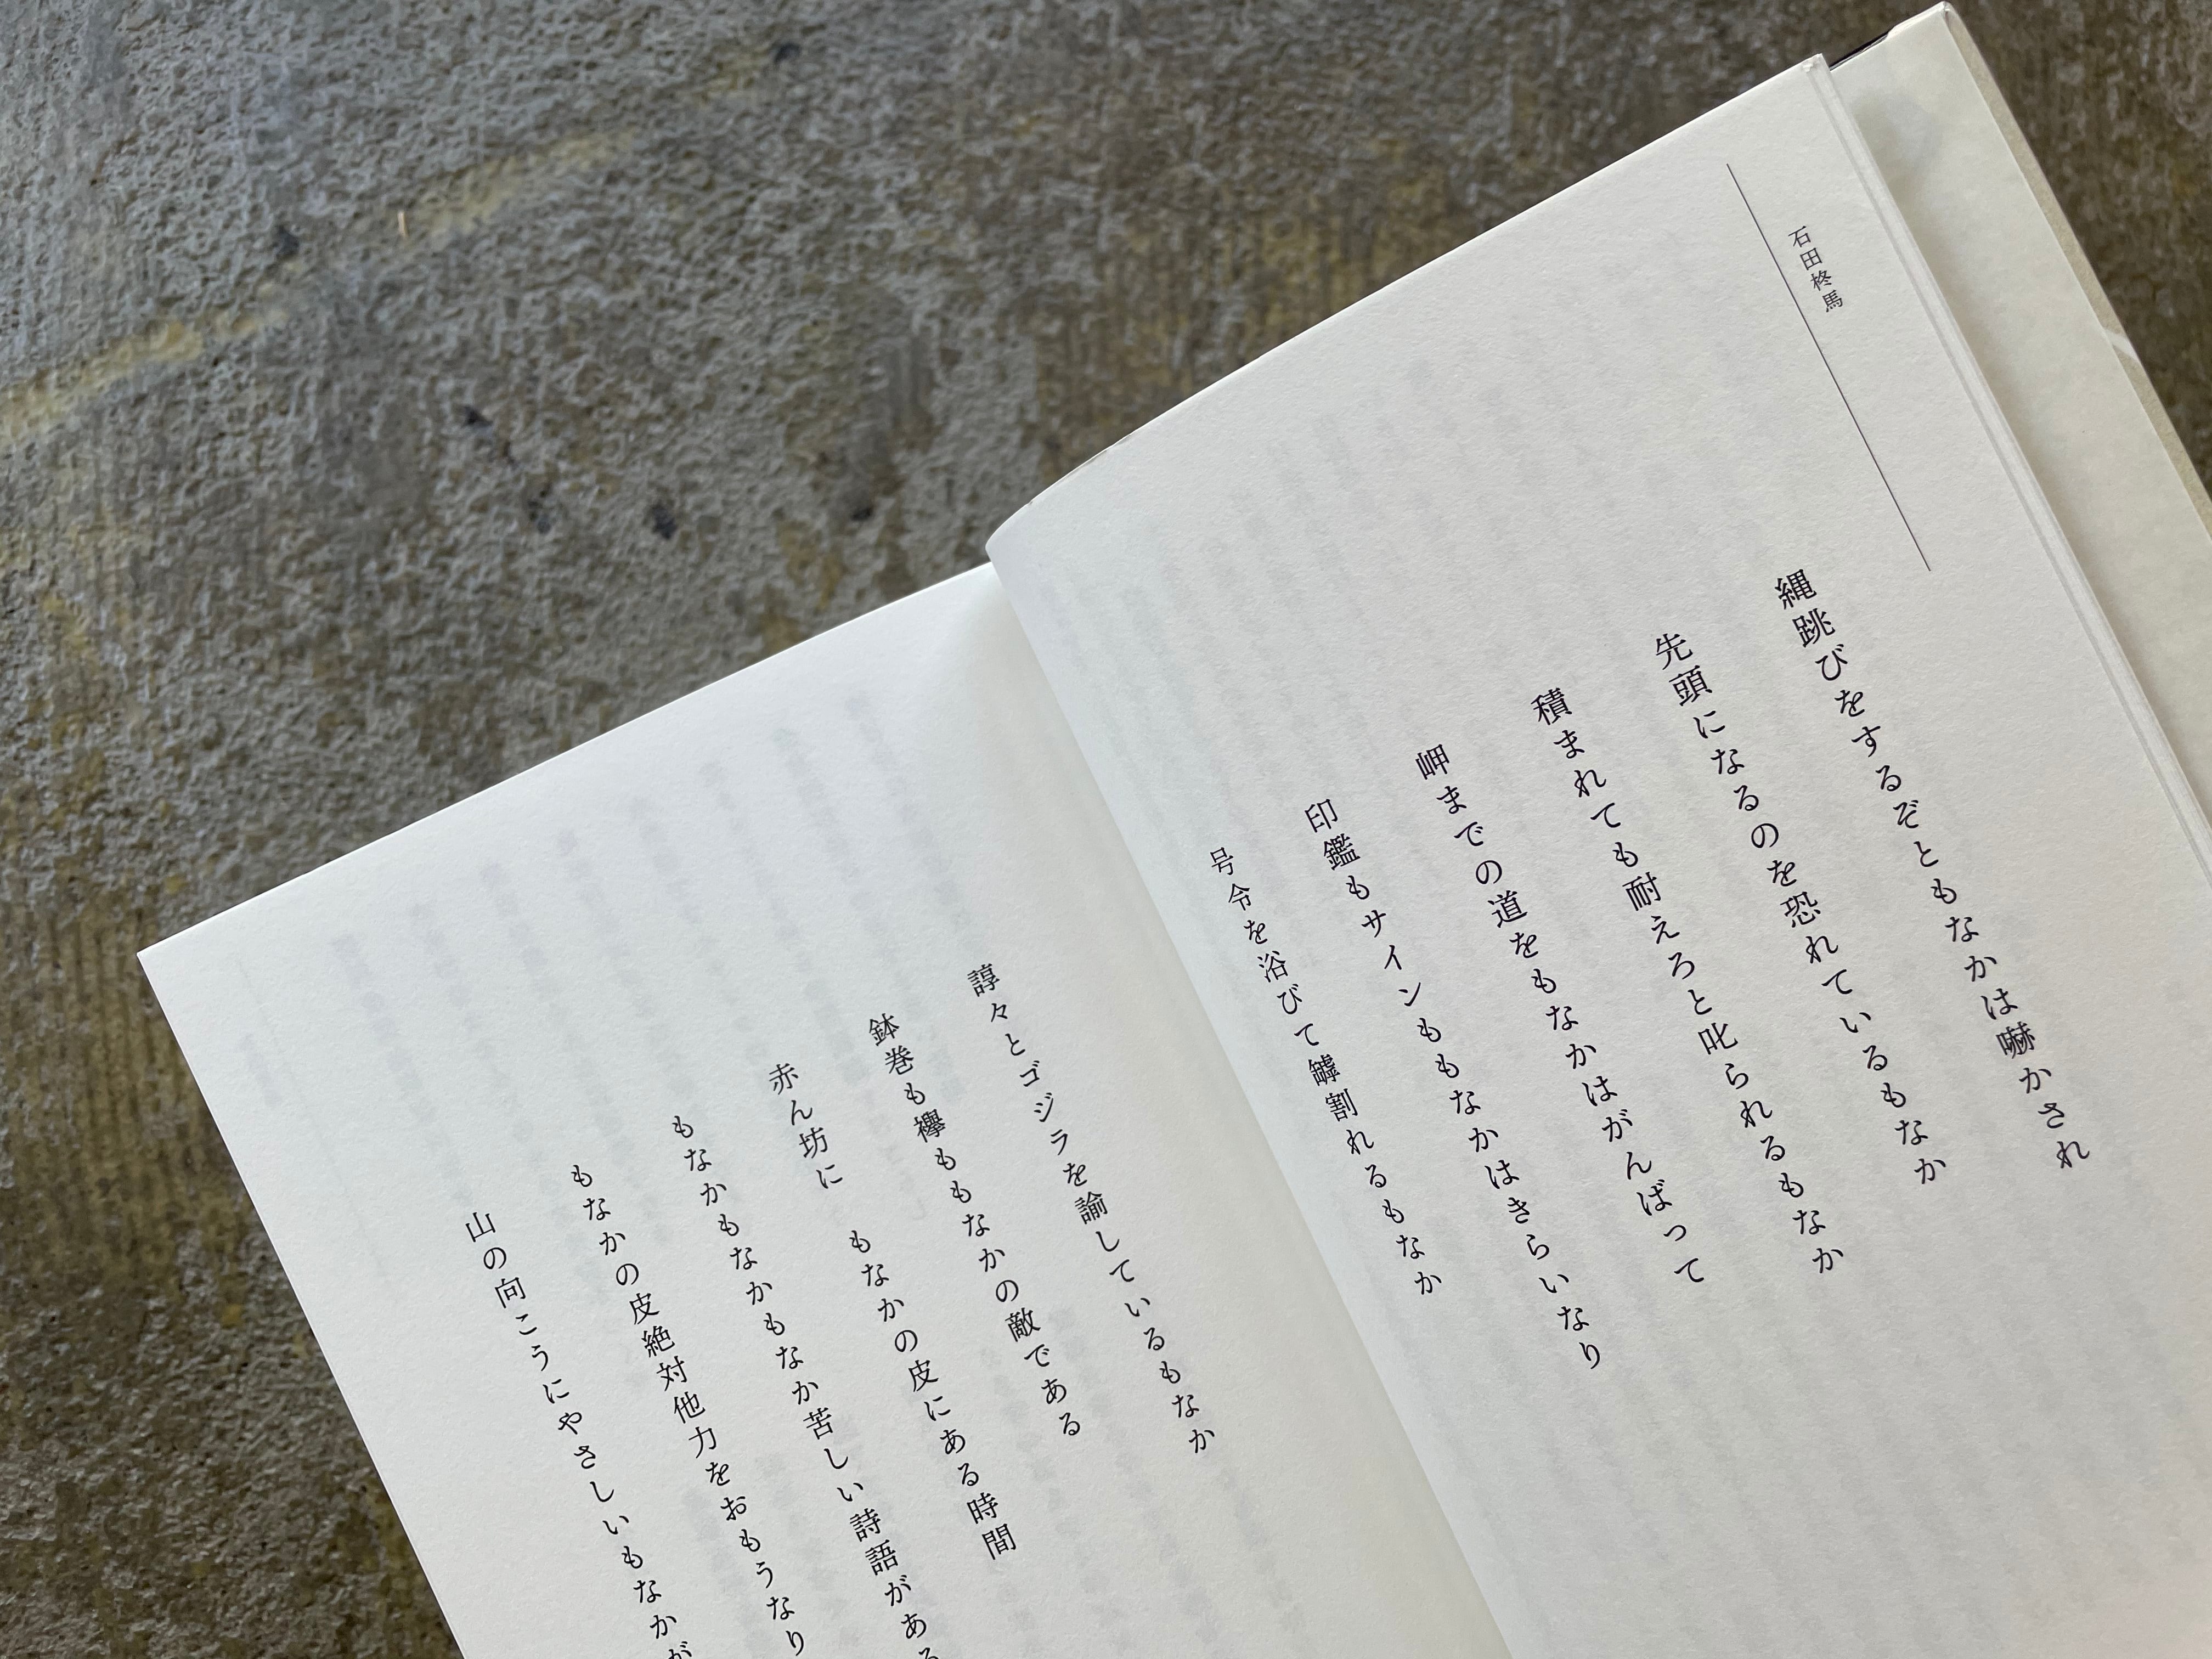 石田柊馬
縄跳びをするぞともなかは嚇かされ
先頭になるのを恐れているもなか
積まれても耐えろと叱られるもなか
岬までの道をもなかはがんばって
印鑑もサインももなかはきらいなり
号令を浴びて罅割れるもなか
諄々とゴジラを諭しているもなか
鉢巻も襷ももなかの敵である
赤ん坊に　もなかの皮にある時間
もなかもなかもなか苦しい詩語がある
もなかの皮絶対他力をおもうなり
山の向こうにやさしいもなかが